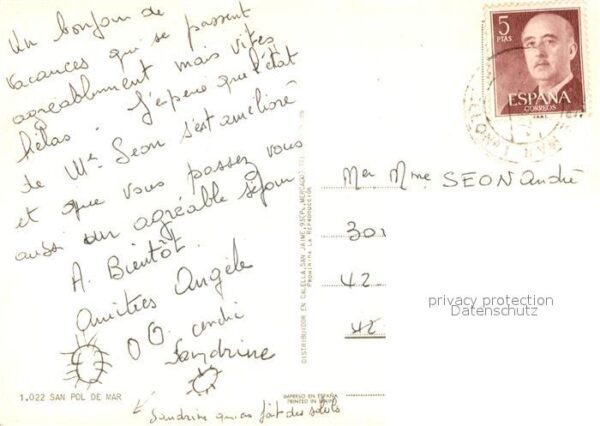 Un bonjour de
vacances qui se passent
agréablement mais vites
hélas. J'espère que l'état
de Mr Seon s'est amélioré
et que vous passez vous
aussi un agréable séjour
A Bientôt.
Amitiés Angèle
Sandrine
1.022 SAN POL DE MAR
Sandrine qui a fait des soleils
DISTRIBUIDOR EN CALELLA, SAN JAIME, 93
PROHIBIDA LA REPRODUCCIÓN
IMPRESO EN ESPAÑA
PRINTED IN SPAIN
5
PTAS
ESPAÑA
CORREOS
M et Mme SEON André
301
42
42
privacy protection
Datenschutz